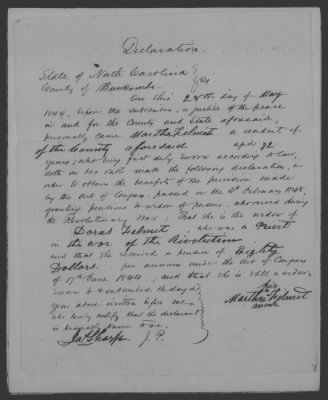 Declaration.
State of North Carolina }
County of Buncombe } SS.
On this 28th day of May
before the subscriber, a justice of the peace
in and for the County and State aforesaid,
personally came Martha Helmet a resident of
of the County aforesaid aged 82
years; who being first duly sworn according to law,
doth on her oath make the following declaration, in
order to obtain the benefits of the provision made
by the Act of Congress, passed on the 2d February 1848,
granting pensions to widows of persons, who served during
the Revolutionary War: That she is the widow of
Helmet, who was a
in the war of the Revolution
and that she received a pension of Eighty
Dollars. per annum under the Act of Congress
of 17th June 1844, and that she is still a widow.
sworn to & subscribed, the day &
year above written before me
also hereby certify that the declarant
is personally known to me.
her
Martha Helmet
mark
Jas Sharpe J. P.